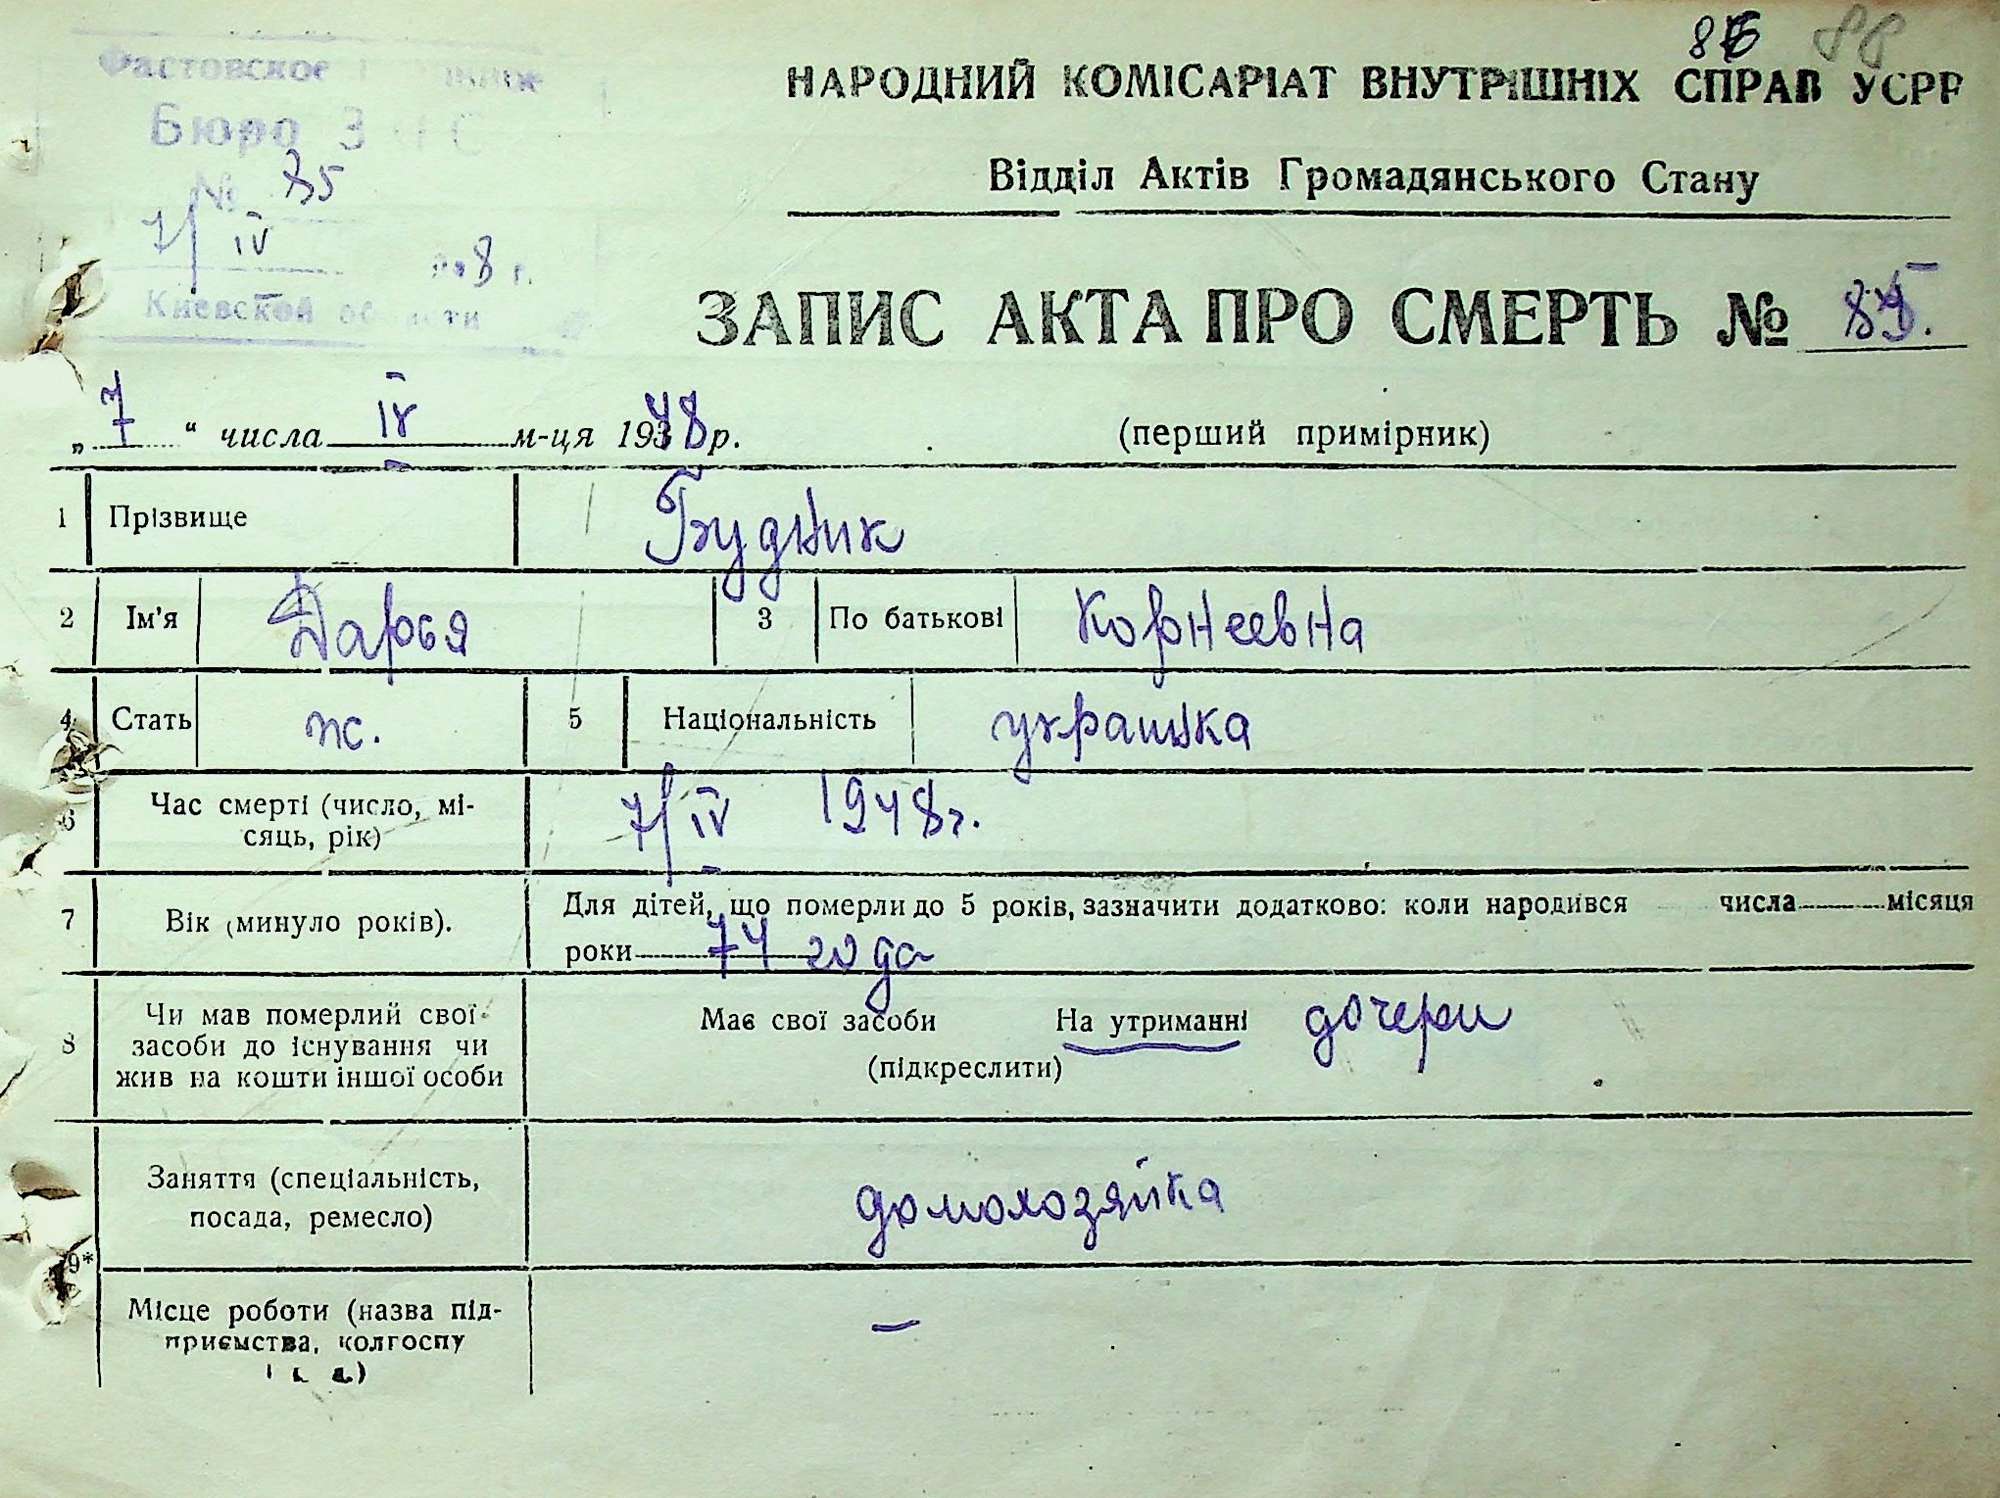 86 88
НАРОДНИЙ КОМІСАРІАТ ВНУТРІШНІХ СПРАВ УСРР
Відділ Актів Громадянського Стану
Фастовское
Бюро ЗАГС
№ 85
7/IV 8 г.
Киевской области
ЗАПИС АКТА ПРО СМЕРТЬ № 85.
„ 7 “ числа IV м-ця 1948 р. (перший примірник)
1 Прізвище Будник
2 Ім'я Дарья 3 По батькові Корнеевна
4 Стать ж. 5 Національність украинка
6 Час смерті (число, мі-
сяць, рік) 7/IV 1948г.
7 Вік (минуло років). Для дітей, що померли до 5 років, зазначити додатково: коли народився числа місяця
роки 74 года
8 Чи мав померлий свої
засоби до існування чи
жив на кошти іншої особи
Має свої засоби На утриманні дочери
(підкреслити)
Заняття (спеціальність,
посада, ремесло) домохозяйка
9*
Місце роботи (назва під-
приємства, колгоспу
і т. д.) —